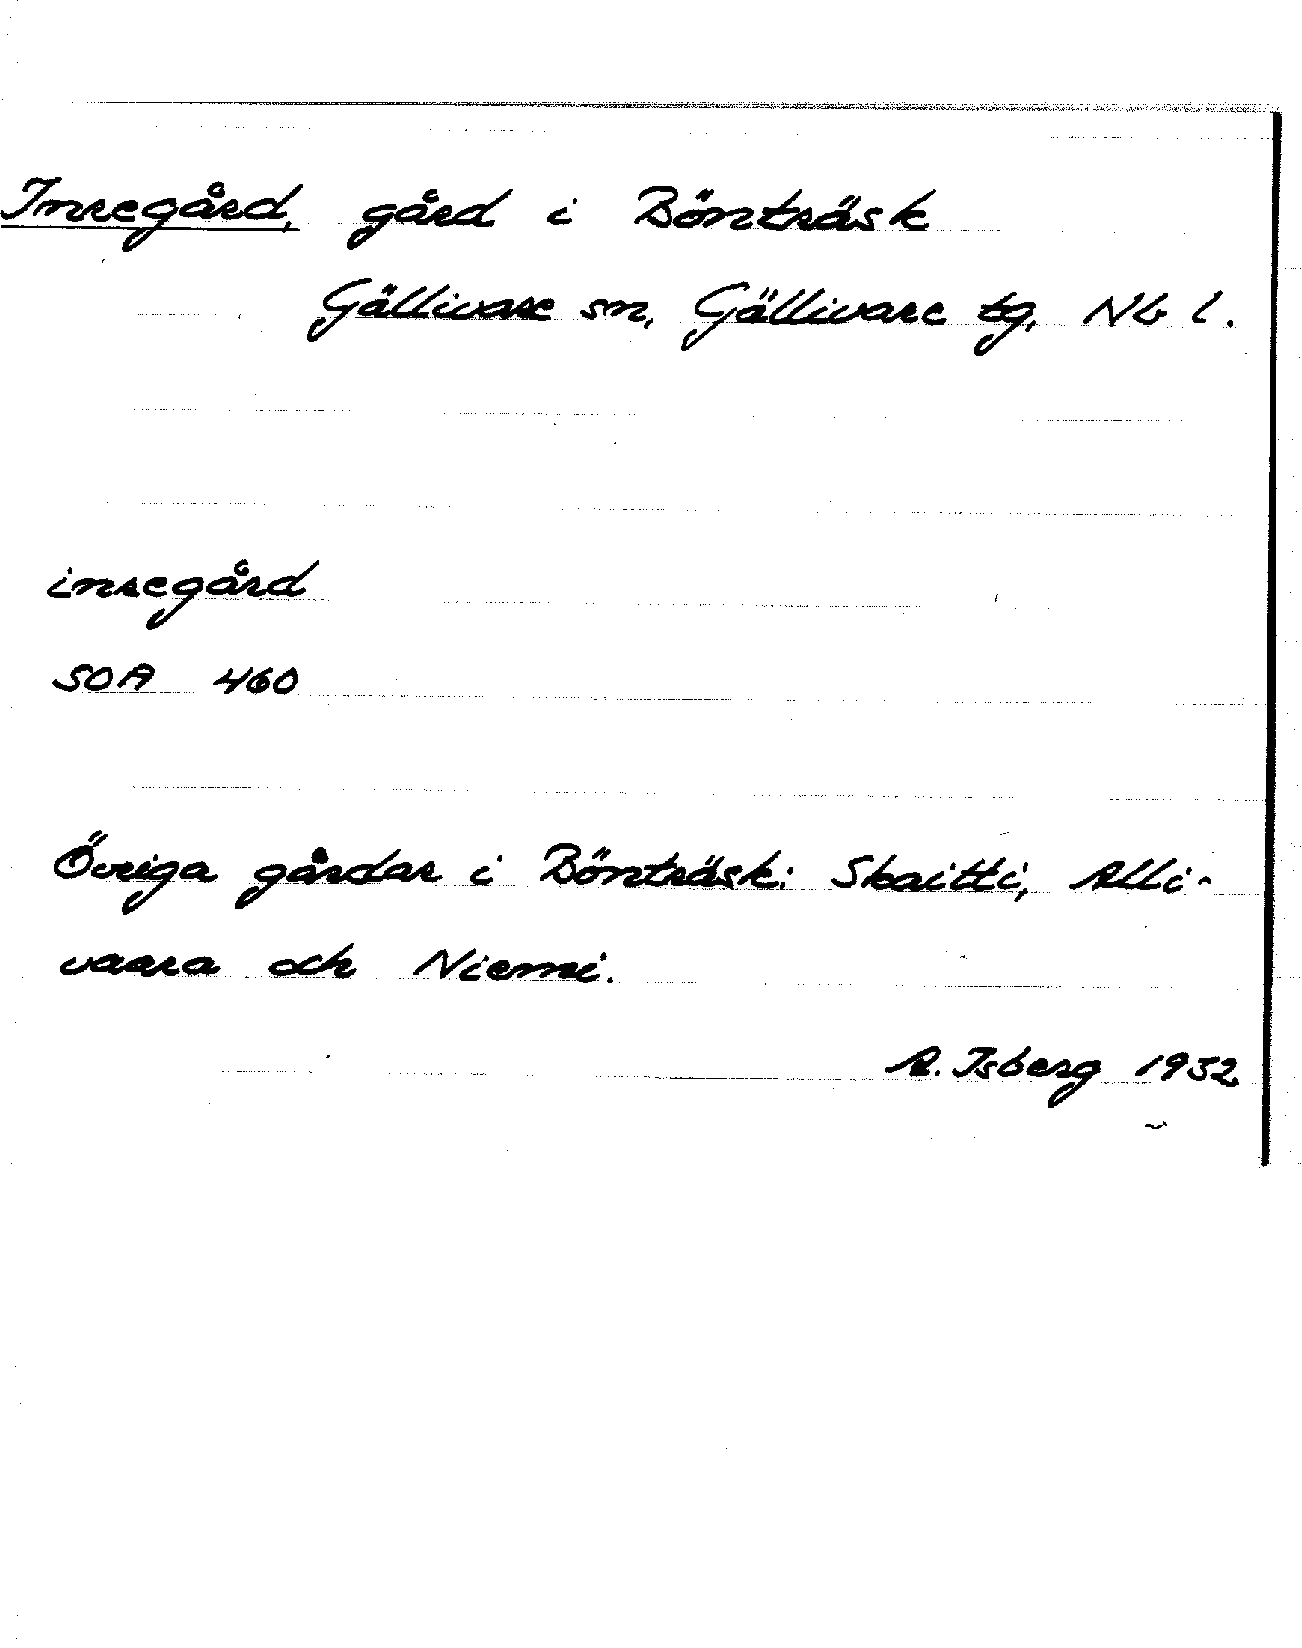 Inregård, gård i Bönträsk
Gällivare sn, Gällivare tg, Nb l.
inregård
SOA 460
Övriga gårdar i Bönträsk: Skaitti, Alli-
vaara och Niemi.
A. Isberg 1932